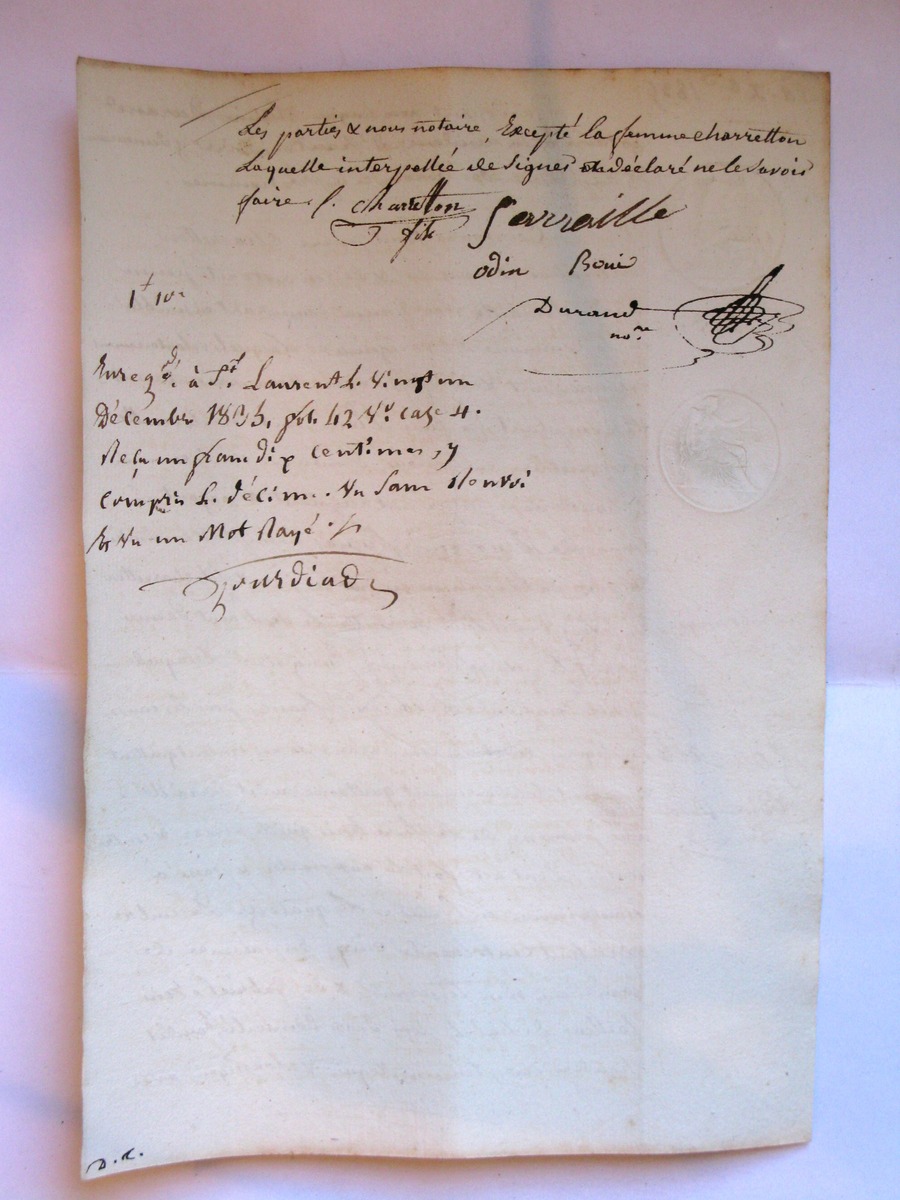 Les parties & nous notaire, Excepté la femme charretton
Laquelle interpellée de signer a déclaré ne le savoir
faire ./. charretton Serraille
fils
odin Boui
1f 10c
Durand
nore
Enregd. à St. Laurent le vingt un
Décembre 1835, fol. 42 Vo. case 4.
Reçu un franc dix centimes, y
compris le décime. Vu sans Renvoi
Et Vu un Mot Rayé ./.
Gourdiad
D. R.